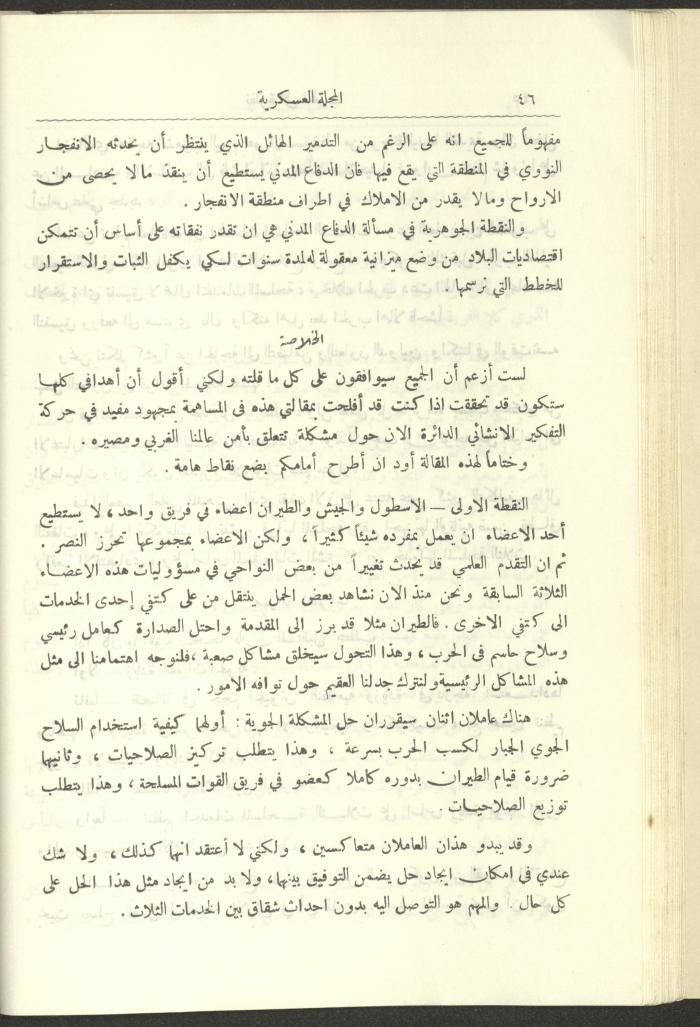 ٤٦
المجلة العسكرية
مفهوماً للجميع انه على الرغم من التدمير الهائل الذي ينتظر أن يحدثه الانفجار
النووي في المنطقة التي يقع فيها فان الدفاع المدني يستطيع أن ينقذ مالا يحصى من
الارواح ومالا يقدر من الاملاك في اطراف منطقة الانفجار .
والنقطة الجوهرية في مسألة الدفاع المدني هي ان تقدر نفقاته على أساس أن تتمكن
اقتصاديات البلاد من وضع ميزانية معقولة له لمدة سنوات لكي يكفل الثبات والاستقرار
للخطط التي ترسمها .
الخلاصة
لست أزعم أن الجميع سيوافقون على كل ما قلته ولكني أقول أن أهدافي كلها
ستكون قد تحققت اذا كنت قد أفلحت بمقالتي هذه في المساهمة بمجهود مفيد في حركة
التفكير الانشائي الدائرة الان حول مشكلة تتعلق بأمن عالمنا الغربي ومصيره .
وختاماً لهذه المقالة أود ان أطرح أمامكم بضع نقاط هامة .
النقطة الاولى – الاسطول والجيش والطيران اعضاء في فريق واحد ، لا يستطيع
أحد الاعضاء ان يعمل بمفرده شيئاً كثيراً ، ولكن الاعضاء بمجموعها تحرز النصر .
ثم ان التقدم العلمي قد يحدث تغييراً من بعض النواحي في مسؤوليات هذه الاعضاء
الثلاثة السابقة ونحن منذ الان نشاهد بعض الحمل ينتقل من على كتفي إحدى الخدمات
الى كتفي الاخرى . فالطيران مثلا قد برز الى المقدمة واحتل الصدارة كعامل رئيسي
وسلاح حاسم في الحرب ، وهذا التحول سيخلق مشاكل صعبة ، فلنوجه اهتمامنا الى مثل
هذه المشاكل الرئيسية ولنترك جدلنا العقيم حول توافه الامور .
هناك عاملان اثنان سيقرران حل المشكلة الجوية : أولهما كيفية استخدام السلاح
الجوي الجبار لكسب الحرب بسرعة ، وهذا يتطلب تركيز الصلاحيات ، وثانيهما
ضرورة قيام الطيران بدوره كاملا كعضو في فريق القوات المسلحة ، وهذا يتطلب
توزيع الصلاحيات .
وقد يبدو هذان العاملان متعاكسين ، ولكني لا أعتقد انهما كذلك ، ولا شك
عندي في امكان ايجاد حل يضمن التوفيق بينهما ، ولا بد من ايجاد مثل هذا الحل على
كل حال . والمهم هو التوصل اليه بدون احداث شقاق بين الخدمات الثلاث .